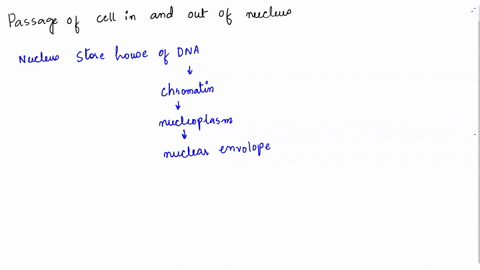 Passage of cell in and out of nucleus
Nucleus Store house of DNA
chromatin
nucleoplasm
nuclear envolope